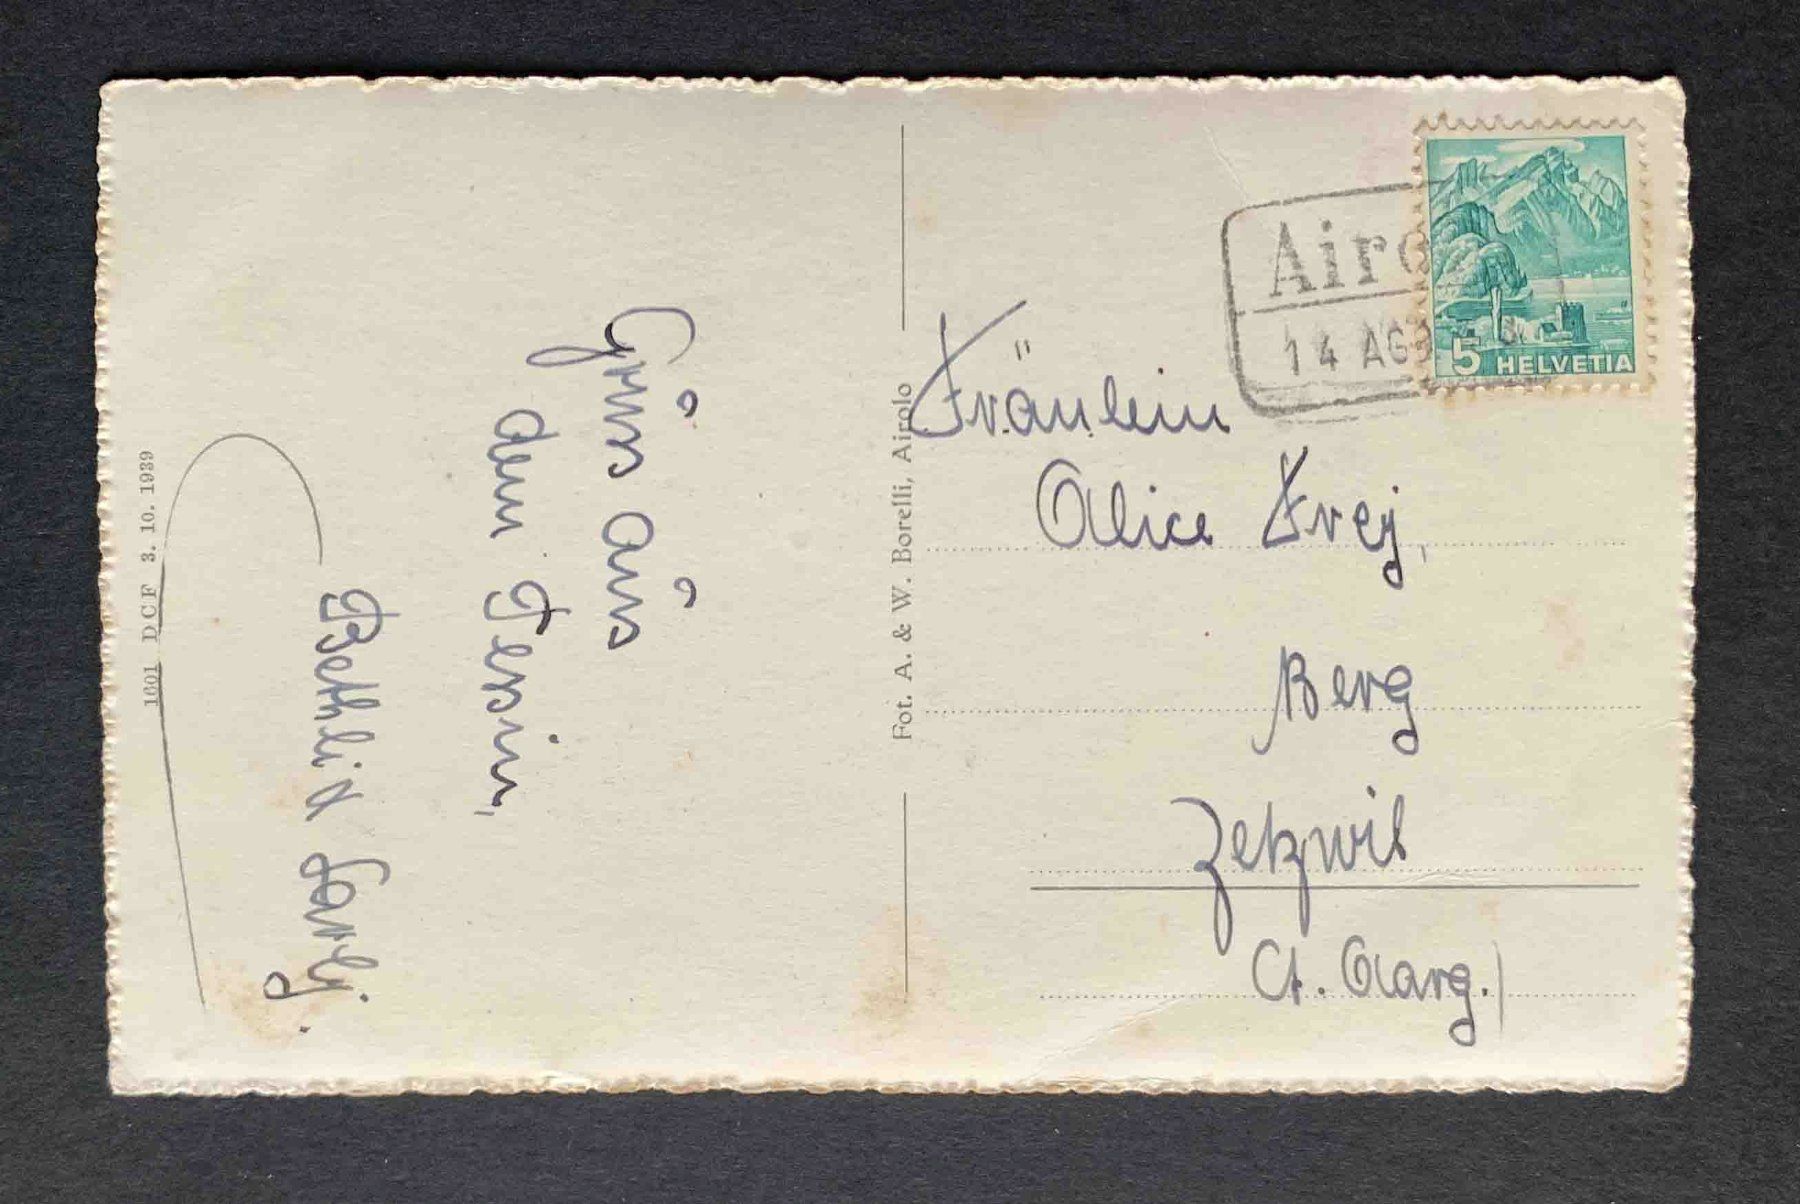 Grüss aus
dem Tessin,
Bethli &
1601 DCF 3. 10. 1939
Fot. A. & W. Borelli, Airolo
Airo
14 AGO
5 HELVETIA
Fräulein
Alice Frey,
Berg
Zetzwil
Ct. Aarg.